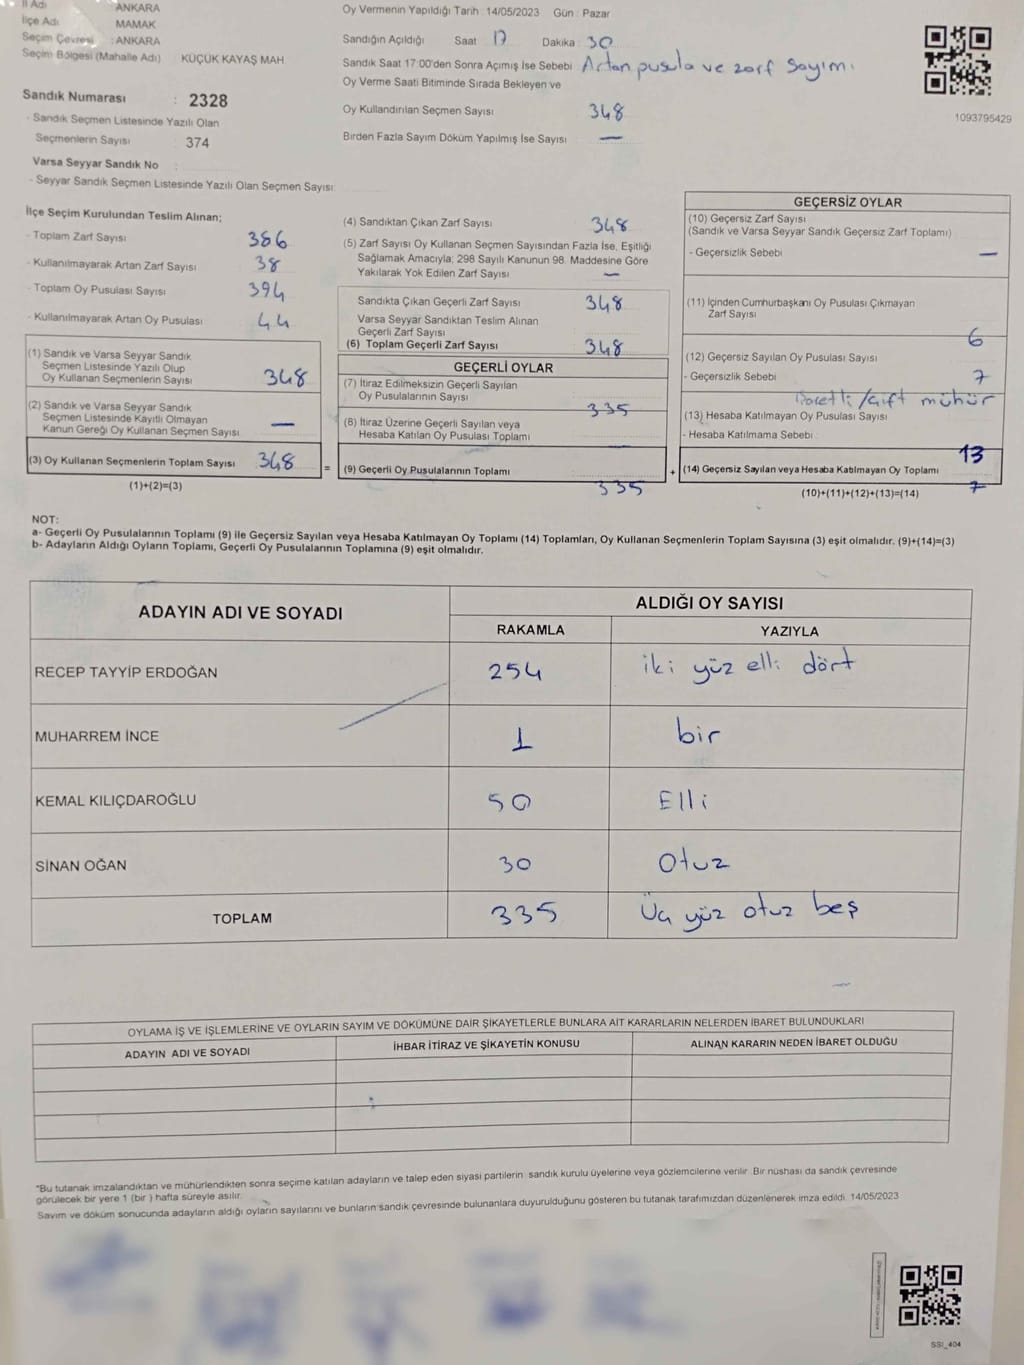 İl Adı ANKARA
İlçe Adı MAMAK
Seçim Çevresi : ANKARA
Seçim Bölgesi (Mahalle Adı) KÜÇÜK KAYAŞ MAH
Sandık Numarası : 2328
- Sandık Seçmen Listesinde Yazılı Olan
Seçmenlerin Sayısı 374
Varsa Seyyar Sandık No :
- Seyyar Sandık Seçmen Listesinde Yazılı Olan Seçmen Sayısı:
Oy Vermenin Yapıldığı Tarih : 14/05/2023 Gün : Pazar
Sandığın Açıldığı Saat 17 Dakika : 30
Sandık Saat 17:00'den Sonra Açımış İse Sebebi Artan pusula ve zarf sayımı
Oy Verme Saati Bitiminde Sırada Bekleyen ve
Oy Kullandırılan Seçmen Sayısı 348
Birden Fazla Sayım Döküm Yapılmış İse Sayısı —
1093795429
İlçe Seçim Kurulundan Teslim Alınan;
- Toplam Zarf Sayısı 386
- Kullanılmayarak Artan Zarf Sayısı 38
- Toplam Oy Pusulası Sayısı 394
- Kullanılmayarak Artan Oy Pusulası 44
(1) Sandık ve Varsa Seyyar Sandık
Seçmen Listesinde Yazılı Olup
Oy Kullanan Seçmenlerin Sayısı 348
(2) Sandık ve Varsa Seyyar Sandık
Seçmen Listesinde Kayıtlı Olmayan
Kanun Gereği Oy Kullanan Seçmen Sayısı —
(3) Oy Kullanan Seçmenlerin Toplam Sayısı 348 =
(1)+(2)=(3)
(4) Sandıktan Çıkan Zarf Sayısı 348
(5) Zarf Sayısı Oy Kullanan Seçmen Sayısından Fazla İse, Eşitliği
Sağlamak Amacıyla; 298 Sayılı Kanunun 98. Maddesine Göre
Yakılarak Yok Edilen Zarf Sayısı —
Sandıkta Çıkan Geçerli Zarf Sayısı 348
Varsa Seyyar Sandıktan Teslim Alınan
Geçerli Zarf Sayısı
(6) Toplam Geçerli Zarf Sayısı 348
GEÇERLİ OYLAR
(7) İtiraz Edilmeksizin Geçerli Sayılan
Oy Pusulalarının Sayısı 335
(8) İtiraz Üzerine Geçerli Sayılan veya
Hesaba Katılan Oy Pusulası Toplamı
(9) Geçerli Oy Pusulalarının Toplamı 335 +
GEÇERSİZ OYLAR
(10) Geçersiz Zarf Sayısı
(Sandık ve Varsa Seyyar Sandık Geçersiz Zarf Toplamı)
- Geçersizlik Sebebi —
(11) İçinden Cumhurbaşkanı Oy Pusulası Çıkmayan
Zarf Sayısı 6
(12) Geçersiz Sayılan Oy Pusulası Sayısı
- Geçersizlik Sebebi 7
İşaretli/Çift mühür
(13) Hesaba Katılmayan Oy Pusulası Sayısı
- Hesaba Katılmama Sebebi
13
(14) Geçersiz Sayılan veya Hesaba Katılmayan Oy Toplamı
7
(10)+(11)+(12)+(13)=(14)
NOT:
a- Geçerli Oy Pusulalarının Toplamı (9) ile Geçersiz Sayılan veya Hesaba Katılmayan Oy Toplamı (14) Toplamları, Oy Kullanan Seçmenlerin Toplam Sayısına (3) eşit olmalıdır. (9)+(14)=(3)
b- Adayların Aldığı Oyların Toplamı, Geçerli Oy Pusulalarının Toplamına (9) eşit olmalıdır.
ADAYIN ADI VE SOYADI ALDIĞI OY SAYISI
RAKAMLA YAZIYLA
RECEP TAYYİP ERDOĞAN 254 iki yüz elli dört
MUHARREM İNCE 1 bir
KEMAL KILIÇDAROĞLU 50 Elli
SİNAN OĞAN 30 Otuz
TOPLAM 335 Üç yüz otuz beş
OYLAMA İŞ VE İŞLEMLERİNE VE OYLARIN SAYIM VE DÖKÜMÜNE DAİR ŞİKAYETLERLE BUNLARA AİT KARARLARIN NELERDEN İBARET BULUNDUKLARI
ADAYIN ADI VE SOYADI İHBAR İTİRAZ VE ŞİKAYETİN KONUSU ALINAN KARARIN NEDEN İBARET OLDUĞU
*Bu tutanak imzalandıktan ve mühürlendikten sonra seçime katılan adayların ve talep eden siyasi partilerin sandık kurulu üyelerine veya gözlemcilerine verilir. Bir nüshası da sandık çevresinde
görülecek bir yere 1 (bir ) hafta süreyle asılır.
Sayım ve döküm sonucunda adayların aldığı oyların sayılarını ve bunların sandık çevresinde bulunanlara duyurulduğunu gösteren bu tutanak tarafımızdan düzenlenerek imza edildi. 14/05/2023
SSI_404